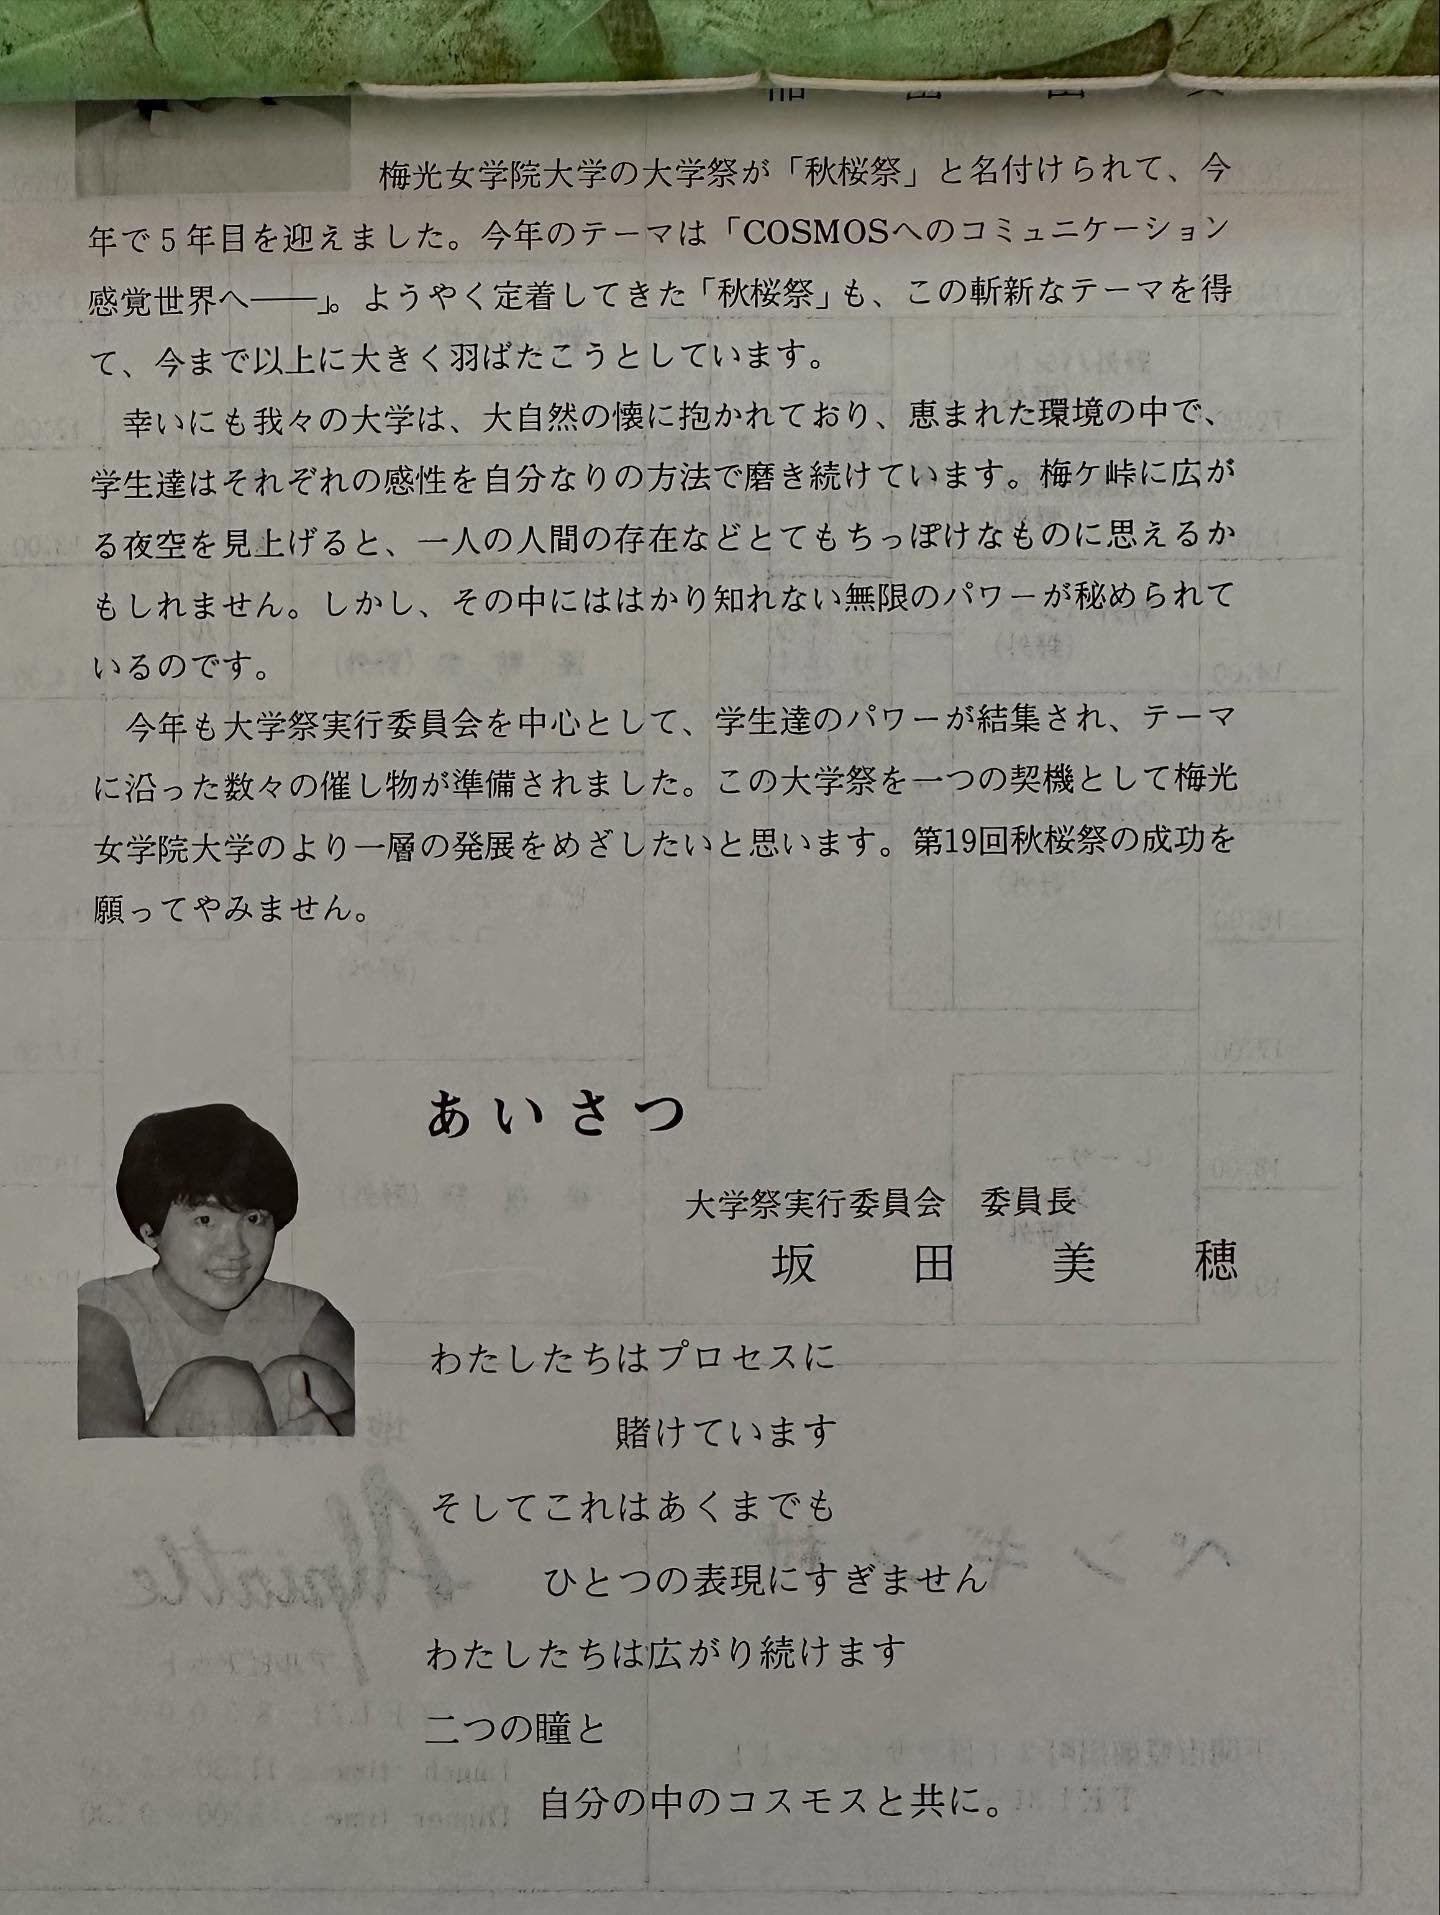 梅光女学院大学の大学祭が「秋桜祭」と名付けられて、今
年で5年目を迎えました。今年のテーマは「COSMOSへのコミュニケーション
感覚世界へ——」。ようやく定着してきた「秋桜祭」も、この斬新なテーマを得
て、今まで以上に大きく羽ばたこうとしています。
幸いにも我々の大学は、大自然の懐に抱かれており、恵まれた環境の中で、
学生達はそれぞれの感性を自分なりの方法で磨き続けています。梅ケ峠に広が
る夜空を見上げると、一人の人間の存在などとてもちっぽけなものに思えるか
もしれません。しかし、その中にははかり知れない無限のパワーが秘められて
いるのです。
今年も大学祭実行委員会を中心として、学生達のパワーが結集され、テーマ
に沿った数々の催し物が準備されました。この大学祭を一つの契機として梅光
女学院大学のより一層の発展をめざしたいと思います。第19回秋桜祭の成功を
願ってやみません。
あいさつ
大学祭実行委員会 委員長
坂田美穂
わたしたちはプロセスに
賭けています
そしてこれはあくまでも
ひとつの表現にすぎません
わたしたちは広がり続けます
二つの瞳と
自分の中のコスモスと共に。